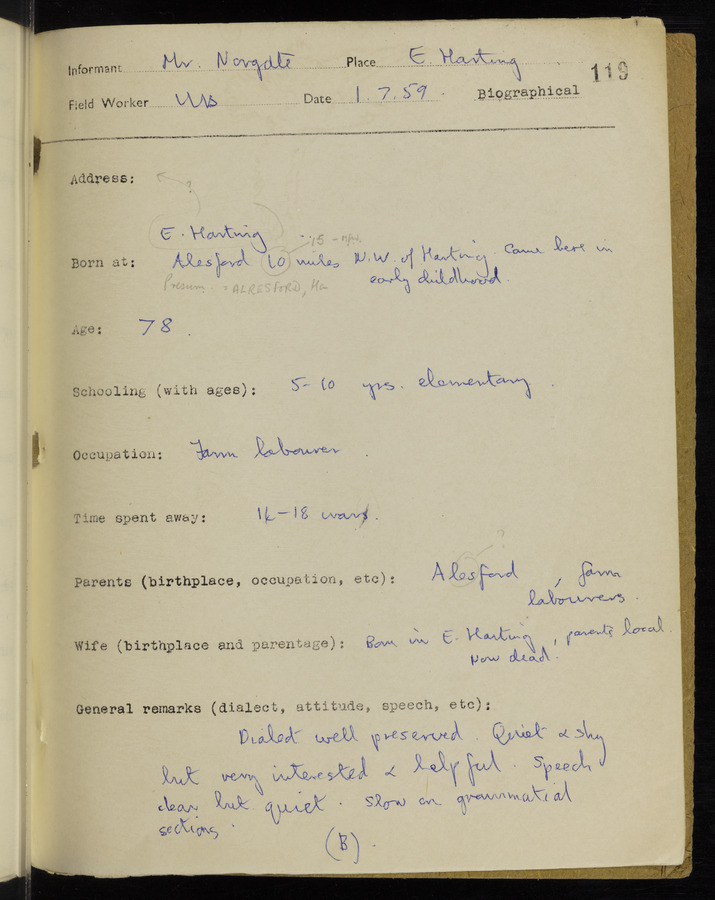 Informant Mr. Norgate Place E. Harting 119
Field Worker Date 1.7.59. Biographical
Address: ?
E. Harting 15
Born at: Alesford 10 miles N.W. of Harting. Came here in
early childhood.
Presum. = ALRESFORD, Ha
Age: 78.
Schooling (with ages): 5-10 yrs. elementary.
Occupation: Farm labourer.
Time spent away: 14-18 war.
?
Parents (birthplace, occupation, etc): Alesford, farm
labourers.
Wife (birthplace and parentage): Born in E. Harting, parents local.
Now dead.
General remarks (dialect, attitude, speech, etc):
Dialect well preserved. Quiet & shy
but very interested & helpful. Speech
clear but quiet. Slow on grammatical
sections.
(B).